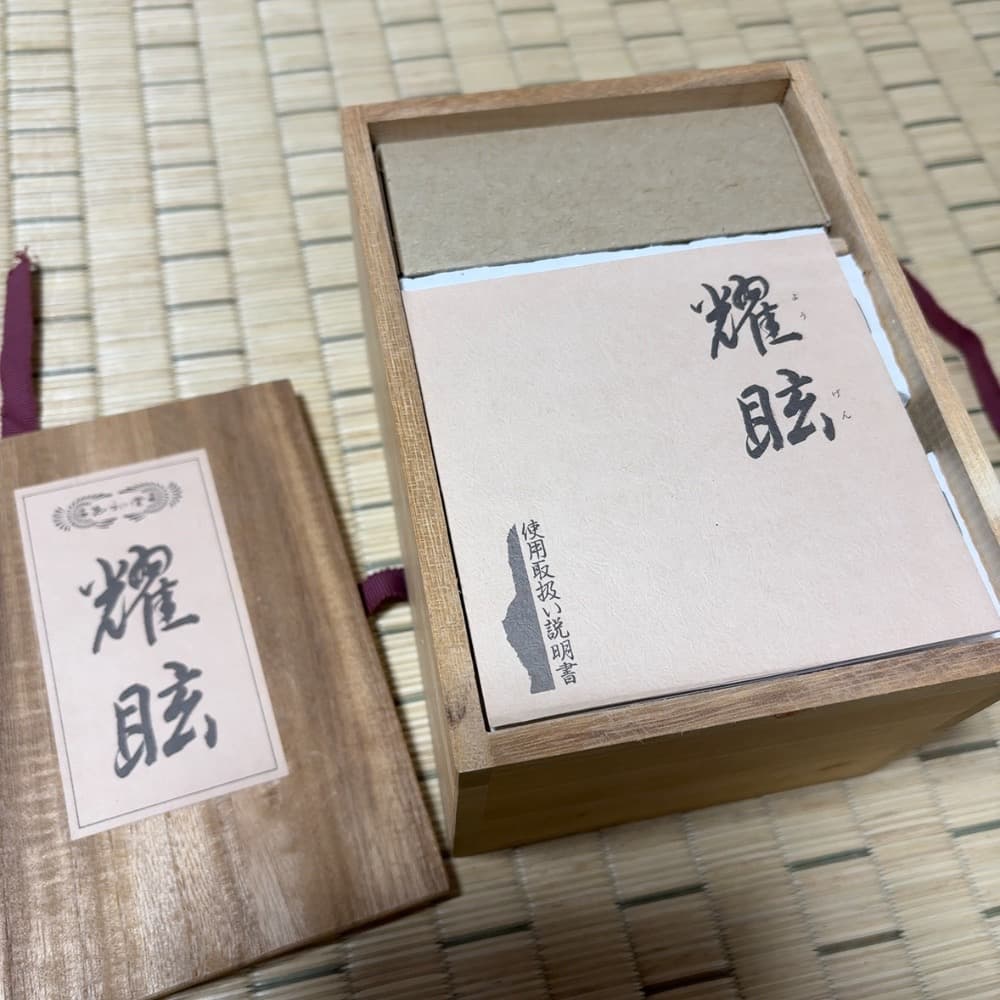 耀眩
耀眩
よう
げん
使用取扱い説明書